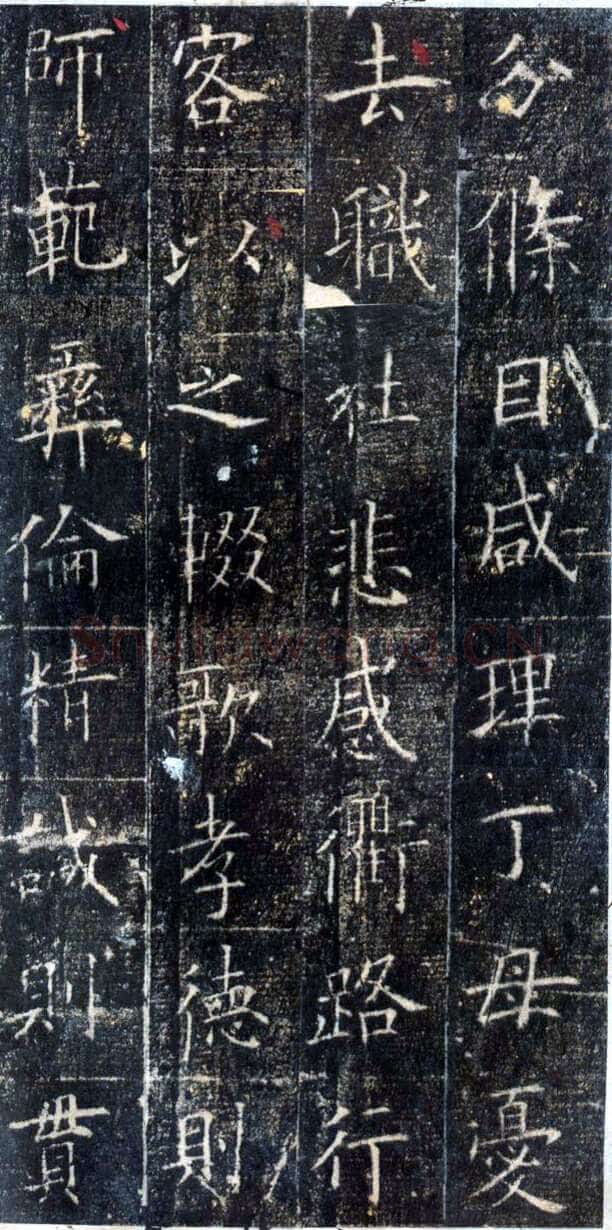 分條目咸理丁母憂
去職社悲感衢路行
客以之輟歌孝德則
師範彝倫精誠則貫
Shufawang.CN